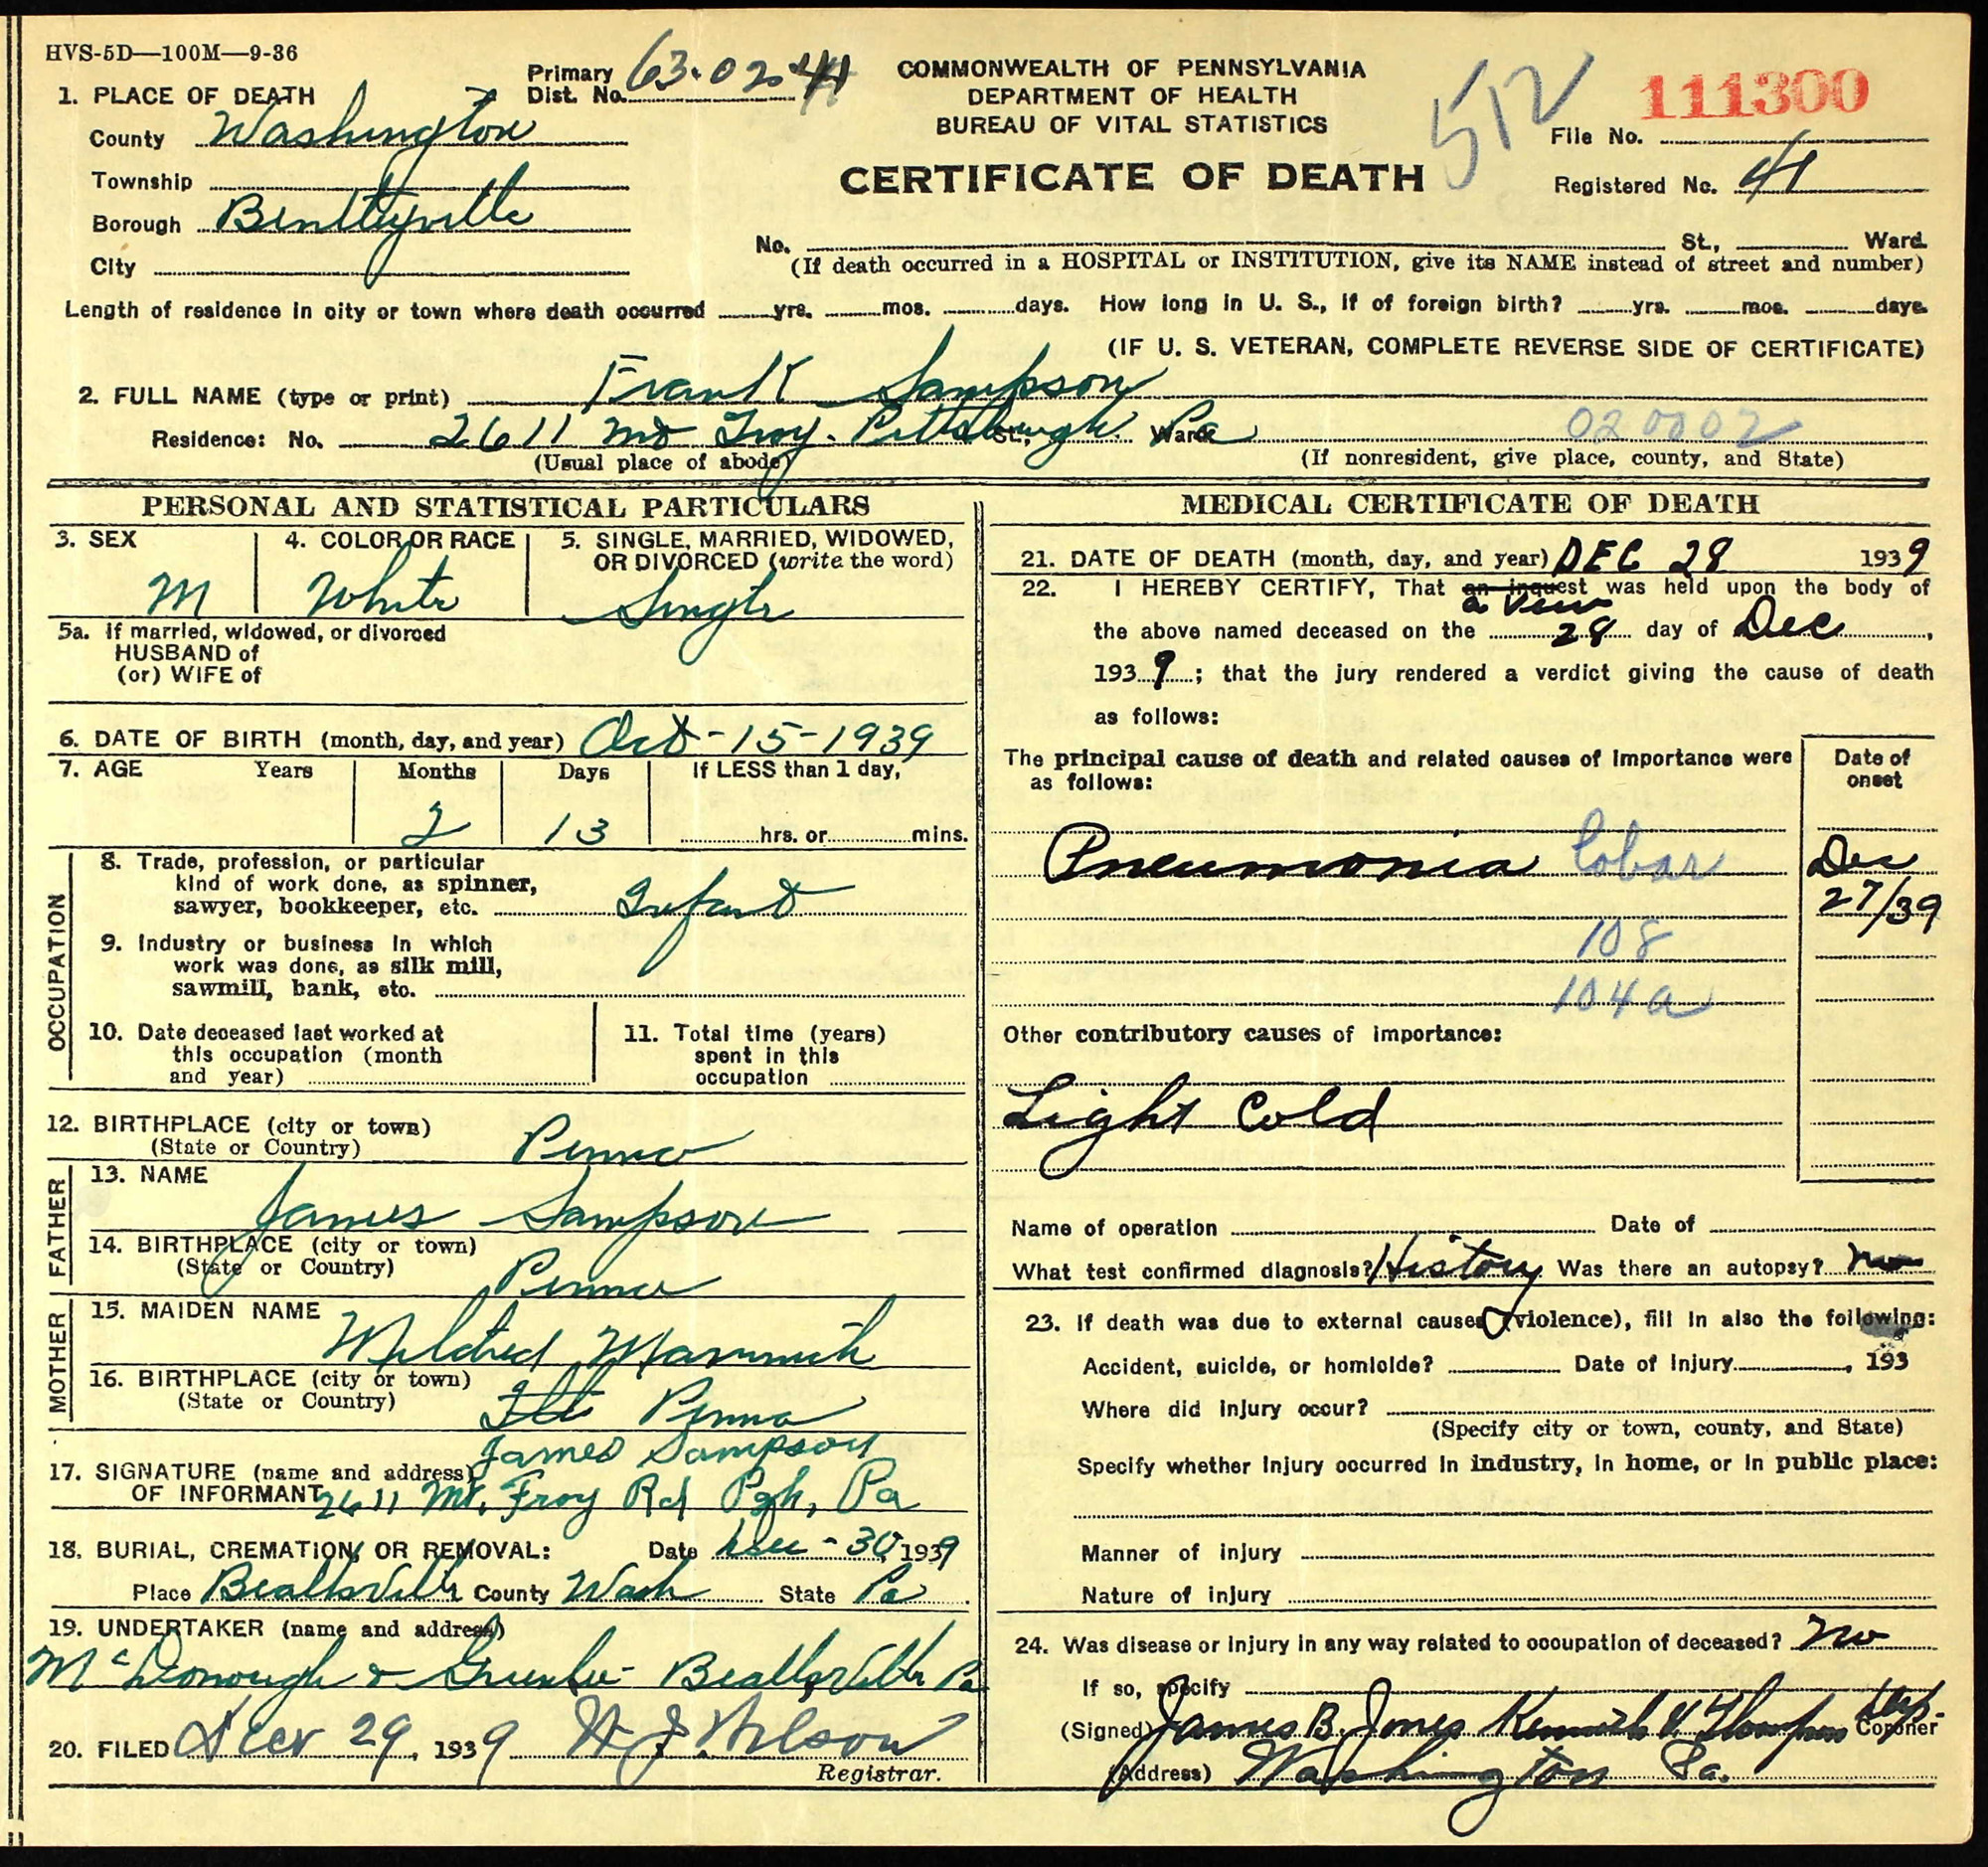 HVS-5D—100M—9-36
Primary
Dist. No. 63-02-
COMMONWEALTH OF PENNSYLVANIA
DEPARTMENT OF HEALTH
BUREAU OF VITAL STATISTICS
CERTIFICATE OF DEATH
512
111300
File No.
Registered No. 41
1. PLACE OF DEATH
County Washington
Township
Borough Bentleyville
City
No. St., Ward.
(If death occurred in a HOSPITAL or INSTITUTION, give its NAME instead of street and number)
Length of residence in city or town where death occurred yrs. mos. days. How long in U. S., if of foreign birth? yrs. mos. days.
(IF U. S. VETERAN, COMPLETE REVERSE SIDE OF CERTIFICATE)
2. FULL NAME (type or print) Frank Sampson
Residence: No. 2611 Mt Troy. Pittsburgh St., Ward Pa 020002
(Usual place of abode)
(If nonresident, give place, county, and State)
PERSONAL AND STATISTICAL PARTICULARS
3. SEX
M
4. COLOR OR RACE
White
5. SINGLE, MARRIED, WIDOWED,
OR DIVORCED (write the word)
Single
5a. If married, widowed, or divorced
HUSBAND of
(or) WIFE of
6. DATE OF BIRTH (month, day, and year) Oct-15-1939
7. AGE Years Months Days If LESS than 1 day,
2 13 hrs. or mins.
OCCUPATION
8. Trade, profession, or particular
kind of work done, as spinner,
sawyer, bookkeeper, etc. Infant
9. Industry or business in which
work was done, as silk mill,
sawmill, bank, etc.
10. Date deceased last worked at
this occupation (month
and year)
11. Total time (years)
spent in this
occupation
12. BIRTHPLACE (city or town)
(State or Country) Penna
FATHER
13. NAME
James Sampson
14. BIRTHPLACE (city or town)
(State or Country) Penna
MOTHER
15. MAIDEN NAME
Mildred
16. BIRTHPLACE (city or town)
(State or Country) Penna
17. SIGNATURE (name and address)
OF INFORMANT
James Sampson
2611 Mt. Troy Rd Pgh, Pa
18. BURIAL, CREMATION, OR REMOVAL: Date Dec - 30, 1939
Place Beallsville County Wash State Pa
19. UNDERTAKER (name and address)
McDonough & Beallsville Pa
20. FILED Dec 29, 1939 Wilson
Registrar.
MEDICAL CERTIFICATE OF DEATH
21. DATE OF DEATH (month, day, and year) DEC 28 1939
22. I HEREBY CERTIFY, That an inquest was held upon the body of
a View
the above named deceased on the 28 day of Dec,
1939; that the jury rendered a verdict giving the cause of death
as follows:
The principal cause of death and related causes of importance were
as follows:
Date of
onset
Pneumonia lobar Dec
27/39
108
104a
Other contributory causes of importance:
Light Cold
Name of operation Date of
What test confirmed diagnosis? History Was there an autopsy? no
23. If death was due to external causes (violence), fill in also the following:
Accident, suicide, or homicide? Date of injury , 193
Where did injury occur?
(Specify city or town, county, and State)
Specify whether injury occurred in industry, in home, or in public place:
Manner of injury
Nature of injury
24. Was disease or injury in any way related to occupation of deceased? no
If so, specify
(Signed) James B. Jones Kenneth Thompson Dep. Coroner
(Address) Washington Pa.